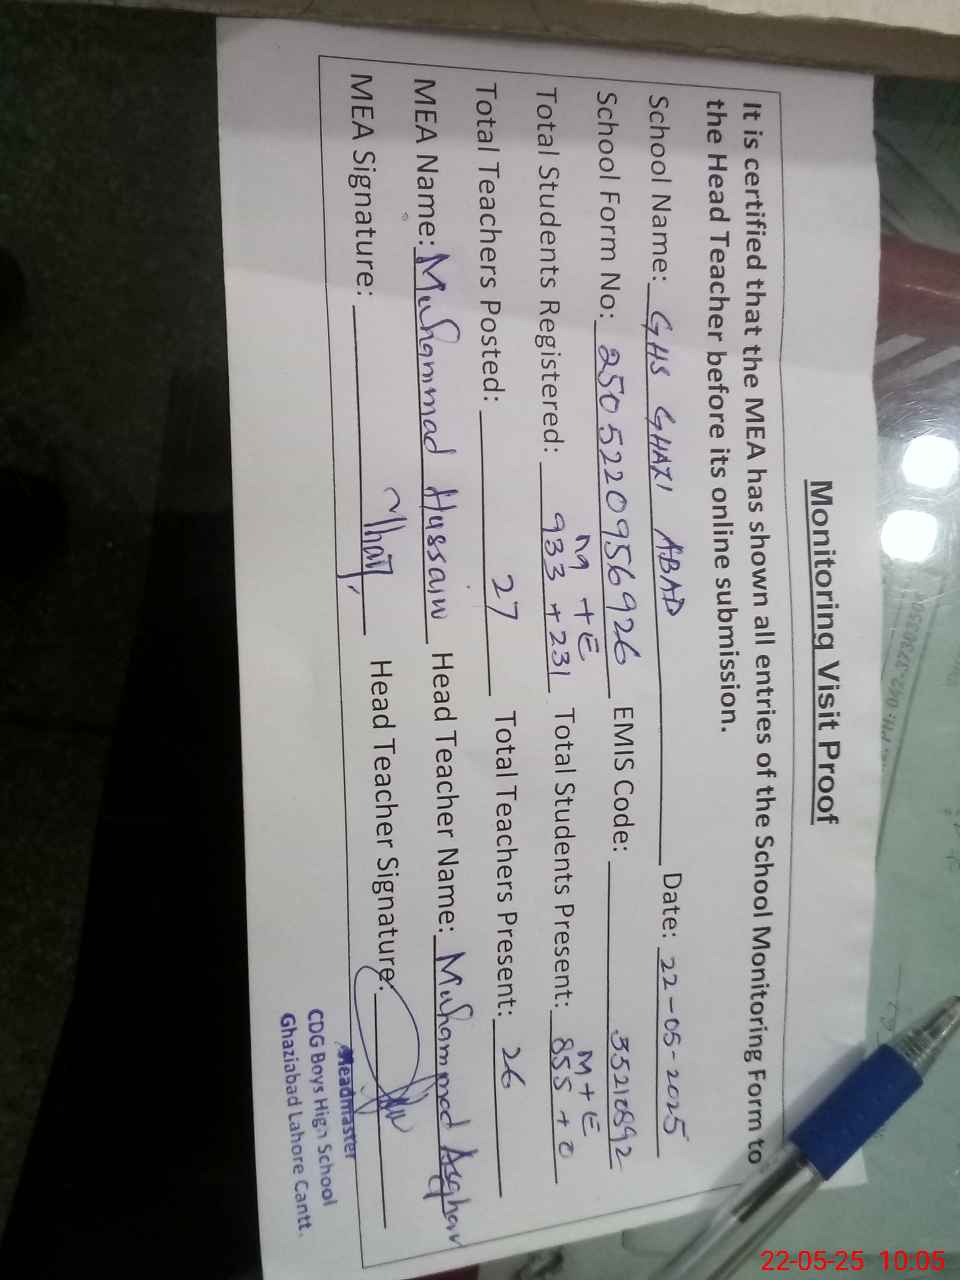 Monitoring Visit Proof
It is certified that the MEA has shown all entries of the School Monitoring Form to
the Head Teacher before its online submission.
School Name: GHS GHAZI ABAD Date: 22-05-2025
School Form No: 2505220956926 EMIS Code: 35210892
M + E M + E
Total Students Registered: 933 + 231 Total Students Present: 855 + 0
Total Teachers Posted: 27 Total Teachers Present: 26
MEA Name: Muhammad Hussain Head Teacher Name: Muhammad Asghar
MEA Signature: Head Teacher Signature:
Headmaster
CDG Boys High School
Ghaziabad Lahore Cantt.
22-05-25 10:05